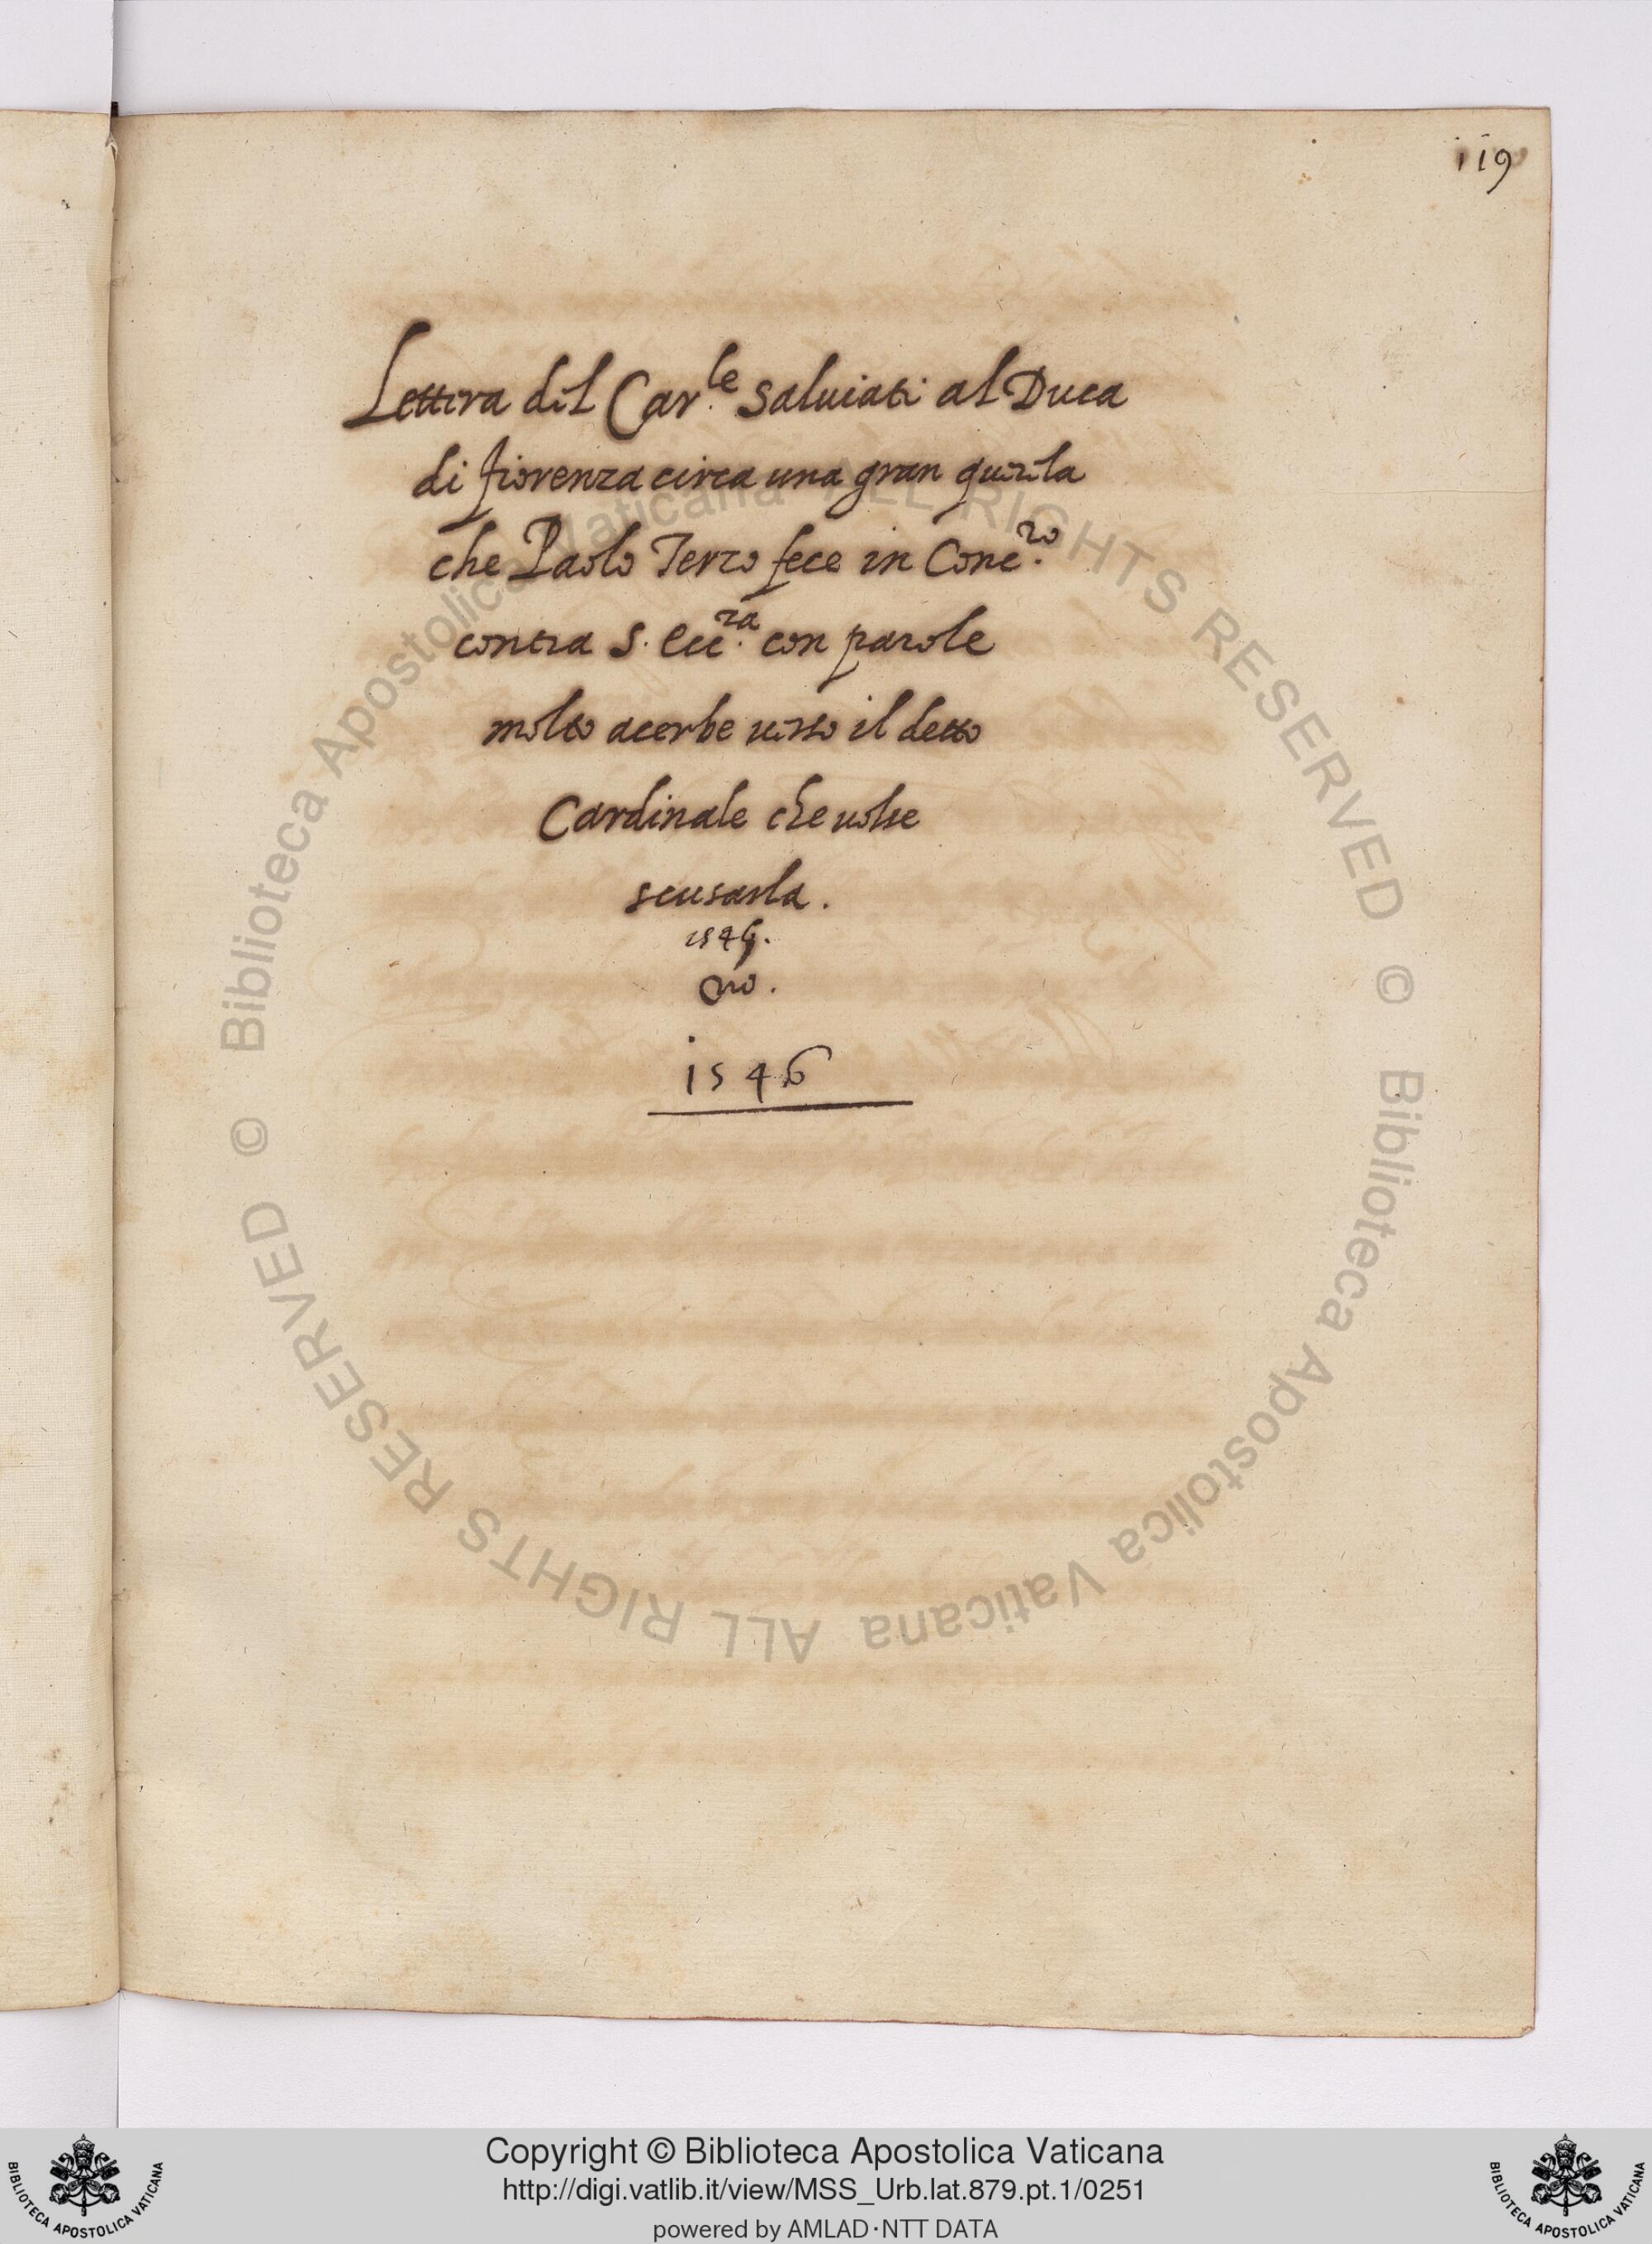 119
Lettera del Car.le Saluiati al Duca
di fiorenza circa una gran querela
che Paolo Terzo fece in Conc.ro
contra S. Ecc.za con parole
molto acerbe uerso il detto
Cardinale che uolse
scusarla.
1546
Biblioteca Apostolica Vaticana ALL RIGHTS RESERVED ©
Biblioteca Apostolica Vaticana ALL RIGHTS RESERVED ©
Copyright © Biblioteca Apostolica Vaticana
http://digi.vatlib.it/view/MSS_Urb.lat.879.pt.1/0251
powered by AMLAD·NTT DATA
BIBLIOTECA APOSTOLICA VATICANA
BIBLIOTECA APOSTOLICA VATICANA